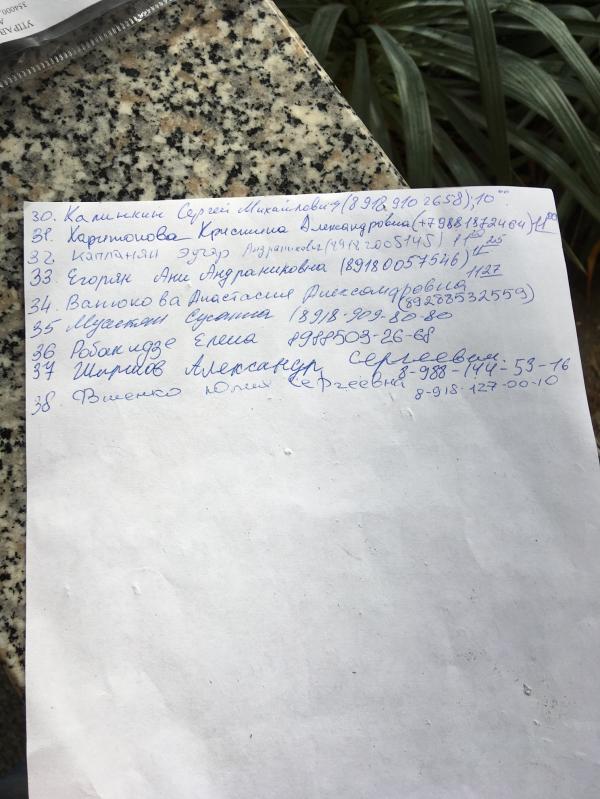 УПРАВ
354000,
30. Калинкин Сергей Михайлович (8918 910 2658); 10⁰⁰
31. Харитонова Кристина Александровна (+79881872464) 11⁰⁰
32. Капланян Эдгар Андраникович (89182005145) 11²⁰
33. Егорян Ани Андраниковна (89180057546) 11²⁵
11²⁷
34. Ванюкова Анастасия Александровна
(89283532559)
35 Сусанна (8918-909-80-80
36 Робакидзе Елена 8988503-26-68
37 Александр Сергеевич
8-988-144-53-16
38 Юлия Сергеевна
8-918-127-00-10